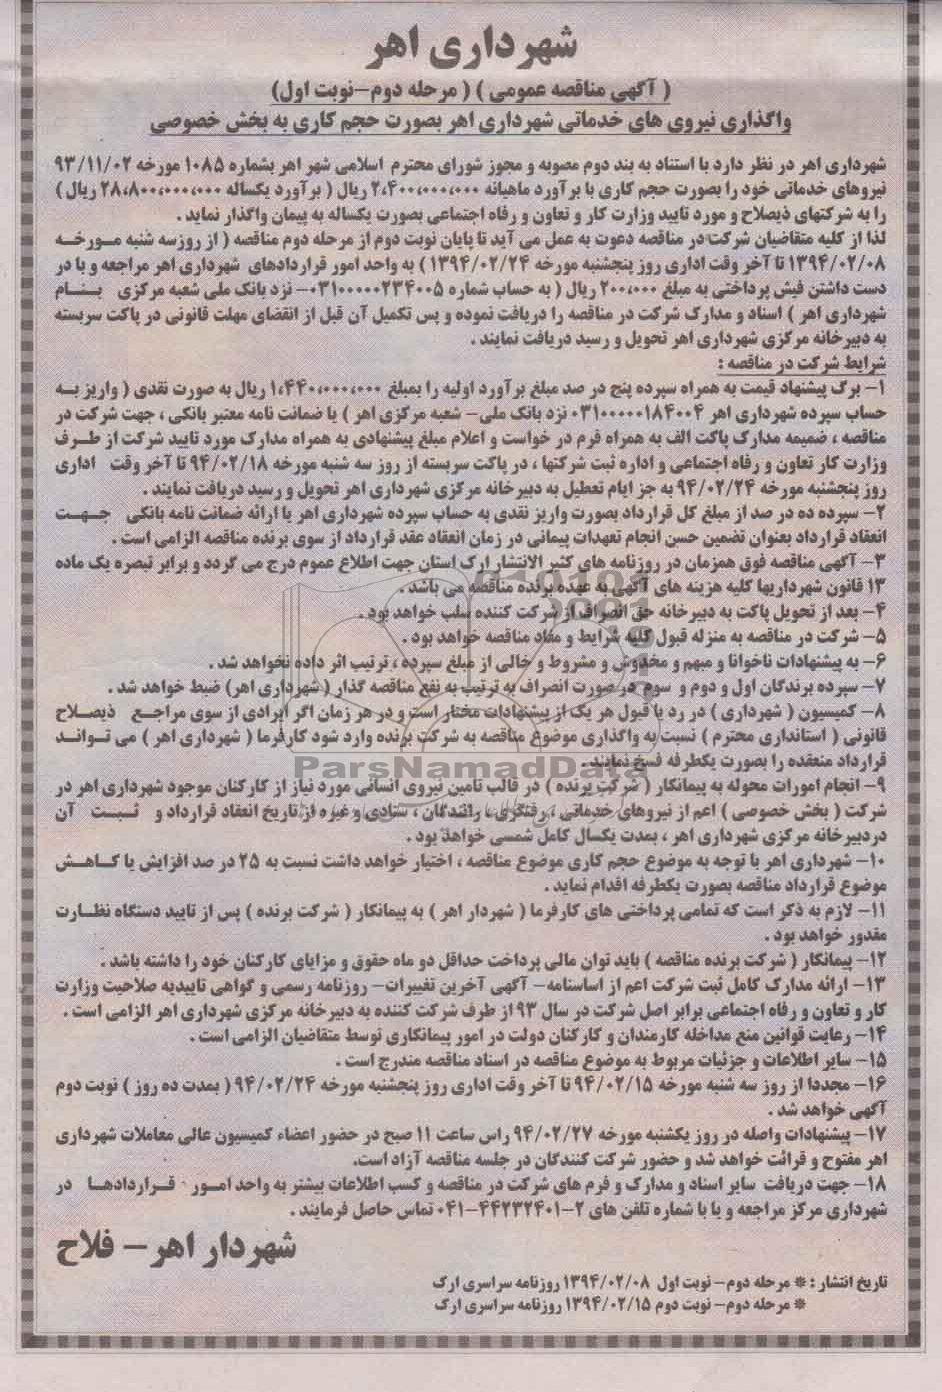 شهرداری اهر
( آگهی مناقصه عمومی ) ( مرحله دوم-نوبت اول)
واگذاری نیروی های خدماتی شهرداری اهر بصورت حجم کاری به بخش خصوصی
شهرداری اهر در نظر دارد با استناد به بند دوم مصوبه و مجوز شورای محترم اسلامی شهر اهر بشماره ۱۰۸۵ مورخه ۹۳/۱۱/۰۲
نیروهای خدماتی خود را بصورت حجم کاری با برآورد ماهیانه ۲،۴۰۰،۰۰۰،۰۰۰ ریال ( برآورد یکساله ۲۸،۸۰۰،۰۰۰،۰۰۰ ریال )
را به شرکتهای ذیصلاح و مورد تایید وزارت کار و تعاون و رفاه اجتماعی بصورت یکساله به پیمان واگذار نماید .
لذا از کلیه متقاضیان شرکت در مناقصه دعوت به عمل می آید تا پایان نوبت دوم از مرحله دوم مناقصه ( از روزسه شنبه مورخه
۱۳۹۴/۰۲/۰۸ تا آخر وقت اداری روز پنجشنبه مورخه ۱۳۹۴/۰۲/۲۴ ) به واحد امور قراردادهای شهرداری اهر مراجعه و با در
دست داشتن فیش پرداختی به مبلغ ۲۰۰،۰۰۰ ریال ( به حساب شماره ۰۳۱۰۰۰۰۰۲۳۴۰۰۵- نزد بانک ملی شعبه مرکزی بنام
شهرداری اهر ) اسناد و مدارک شرکت در مناقصه را دریافت نموده و پس تکمیل آن قبل از انقضای مهلت قانونی در پاکت سربسته
به دبیرخانه مرکزی شهرداری اهر تحویل و رسید دریافت نمایند .
شرایط شرکت در مناقصه :
۱- برگ پیشنهاد قیمت به همراه سپرده پنج در صد مبلغ برآورد اولیه را بمبلغ ۱،۴۴۰،۰۰۰،۰۰۰ ریال به صورت نقدی ( واریز به
حساب سپرده شهرداری اهر ۰۳۱۰۰۰۰۰۱۸۴۰۰۴ نزد بانک ملی- شعبه مرکزی اهر ) یا ضمانت نامه معتبر بانکی ، جهت شرکت در
مناقصه ، ضمیمه مدارک پاکت الف به همراه فرم در خواست و اعلام مبلغ پیشنهادی به همراه مدارک مورد تایید شرکت از طرف
وزارت کار تعاون و رفاه اجتماعی و اداره ثبت شرکتها ، در پاکت سربسته از روز سه شنبه مورخه ۹۴/۰۲/۱۸ تا آخر وقت اداری
روز پنجشنبه مورخه ۹۴/۰۲/۲۴ به جز ایام تعطیل به دبیرخانه مرکزی شهرداری اهر تحویل و رسید دریافت نمایند .
۲- سپرده ده در صد از مبلغ کل قرارداد بصورت واریز نقدی به حساب سپرده شهرداری اهر یا ارائه ضمانت نامه بانکی جهت
انعقاد قرارداد بعنوان تضمین حسن انجام تعهدات پیمانی در زمان انعقاد عقد قرارداد از سوی برنده مناقصه الزامی است .
۳- آگهی مناقصه فوق همزمان در روزنامه های کثیر الانتشار ارک استان جهت اطلاع عموم درج می گردد و برابر تبصره یک ماده
۱۳ قانون شهرداریها کلیه هزینه های آگهی به عهده برنده مناقصه می باشد .
۴- بعد از تحویل پاکت به دبیرخانه حق انصراف از شرکت کننده سلب خواهد بود .
۵- شرکت در مناقصه به منزله قبول کلیه شرایط و مفاد مناقصه خواهد بود .
۶- به پیشنهادات ناخوانا و مبهم و مخدوش و مشروط و خالی از مبلغ سپرده ، ترتیب اثر داده نخواهد شد .
۷- سپرده برندگان اول و دوم و سوم در صورت انصراف به ترتیب به نفع مناقصه گذار ( شهرداری اهر) ضبط خواهد شد .
۸- کمیسیون ( شهرداری ) در رد یا قبول هر یک از پیشنهادات مختار است و در هر زمان اگر ایرادی از سوی مراجع ذیصلاح
قانونی ( استانداری محترم ) نسبت به واگذاری موضوع مناقصه به شرکت برنده وارد شود کارفرما ( شهرداری اهر ) می تواند
قرارداد منعقده را بصورت یکطرفه فسخ نمایند .
ParsNamadData
۹- انجام امورات محوله به پیمانکار ( شرکت برنده ) در قالب تامین نیروی انسانی مورد نیاز از کارکنان موجود شهرداری اهر در
شرکت ( بخش خصوصی ) اعم از نیروهای خدماتی ، رفتگری ، رانندگان ، ستادی و غیره از تاریخ انعقاد قرارداد و ثبت آن
دردبیرخانه مرکزی شهرداری اهر ، بمدت یکسال کامل شمسی خواهد بود .
۱۰- شهرداری اهر با توجه به موضوع حجم کاری موضوع مناقصه ، اختیار خواهد داشت نسبت به ۲۵ در صد افزایش یا کاهش
موضوع قرارداد مناقصه بصورت یکطرفه اقدام نماید .
۱۱- لازم به ذکر است که تمامی پرداختی های کارفرما ( شهردار اهر ) به پیمانکار ( شرکت برنده ) پس از تایید دستگاه نظارت
مقدور خواهد بود .
۱۲- پیمانکار ( شرکت برنده مناقصه ) باید توان مالی پرداخت حداقل دو ماه حقوق و مزایای کارکنان خود را داشته باشد .
۱۳- ارائه مدارک کامل ثبت شرکت اعم از اساسنامه- آگهی آخرین تغییرات- روزنامه رسمی و گواهی تاییدیه صلاحیت وزارت
کار و تعاون و رفاه اجتماعی برابر اصل شرکت در سال ۹۳ از طرف شرکت کننده به دبیرخانه مرکزی شهرداری اهر الزامی است .
۱۴- رعایت قوانین منع مداخله کارمندان و کارکنان دولت در امور پیمانکاری توسط متقاضیان الزامی است .
۱۵- سایر اطلاعات و جزئیات مربوط به موضوع مناقصه در اسناد مناقصه مندرج است .
۱۶- مجددا از روز سه شنبه مورخه ۹۴/۰۲/۱۵ تا آخر وقت اداری روز پنجشنبه مورخه ۹۴/۰۲/۲۴ ( بمدت ده روز ) نوبت دوم
آگهی خواهد شد .
۱۷- پیشنهادات واصله در روز یکشنبه مورخه ۹۴/۰۲/۲۷ راس ساعت ۱۱ صبح در حضور اعضاء کمیسیون عالی معاملات شهرداری
اهر مفتوح و قرائت خواهد شد و حضور شرکت کنندگان در جلسه مناقصه آزاد است.
۱۸- جهت دریافت سایر اسناد و مدارک و فرم های شرکت در مناقصه و کسب اطلاعات بیشتر به واحد امور قراردادها در
شهرداری مرکز مراجعه و یا با شماره تلفن های ۲-۴۴۲۳۲۴۰۱-۰۴۱ تماس حاصل فرمایند .
شهردار اهر- فلاح
تاریخ انتشار : * مرحله دوم- نوبت اول ۱۳۹۴/۰۲/۰۸ روزنامه سراسری ارک
* مرحله دوم- نوبت دوم ۱۳۹۴/۰۲/۱۵ روزنامه سراسری ارک